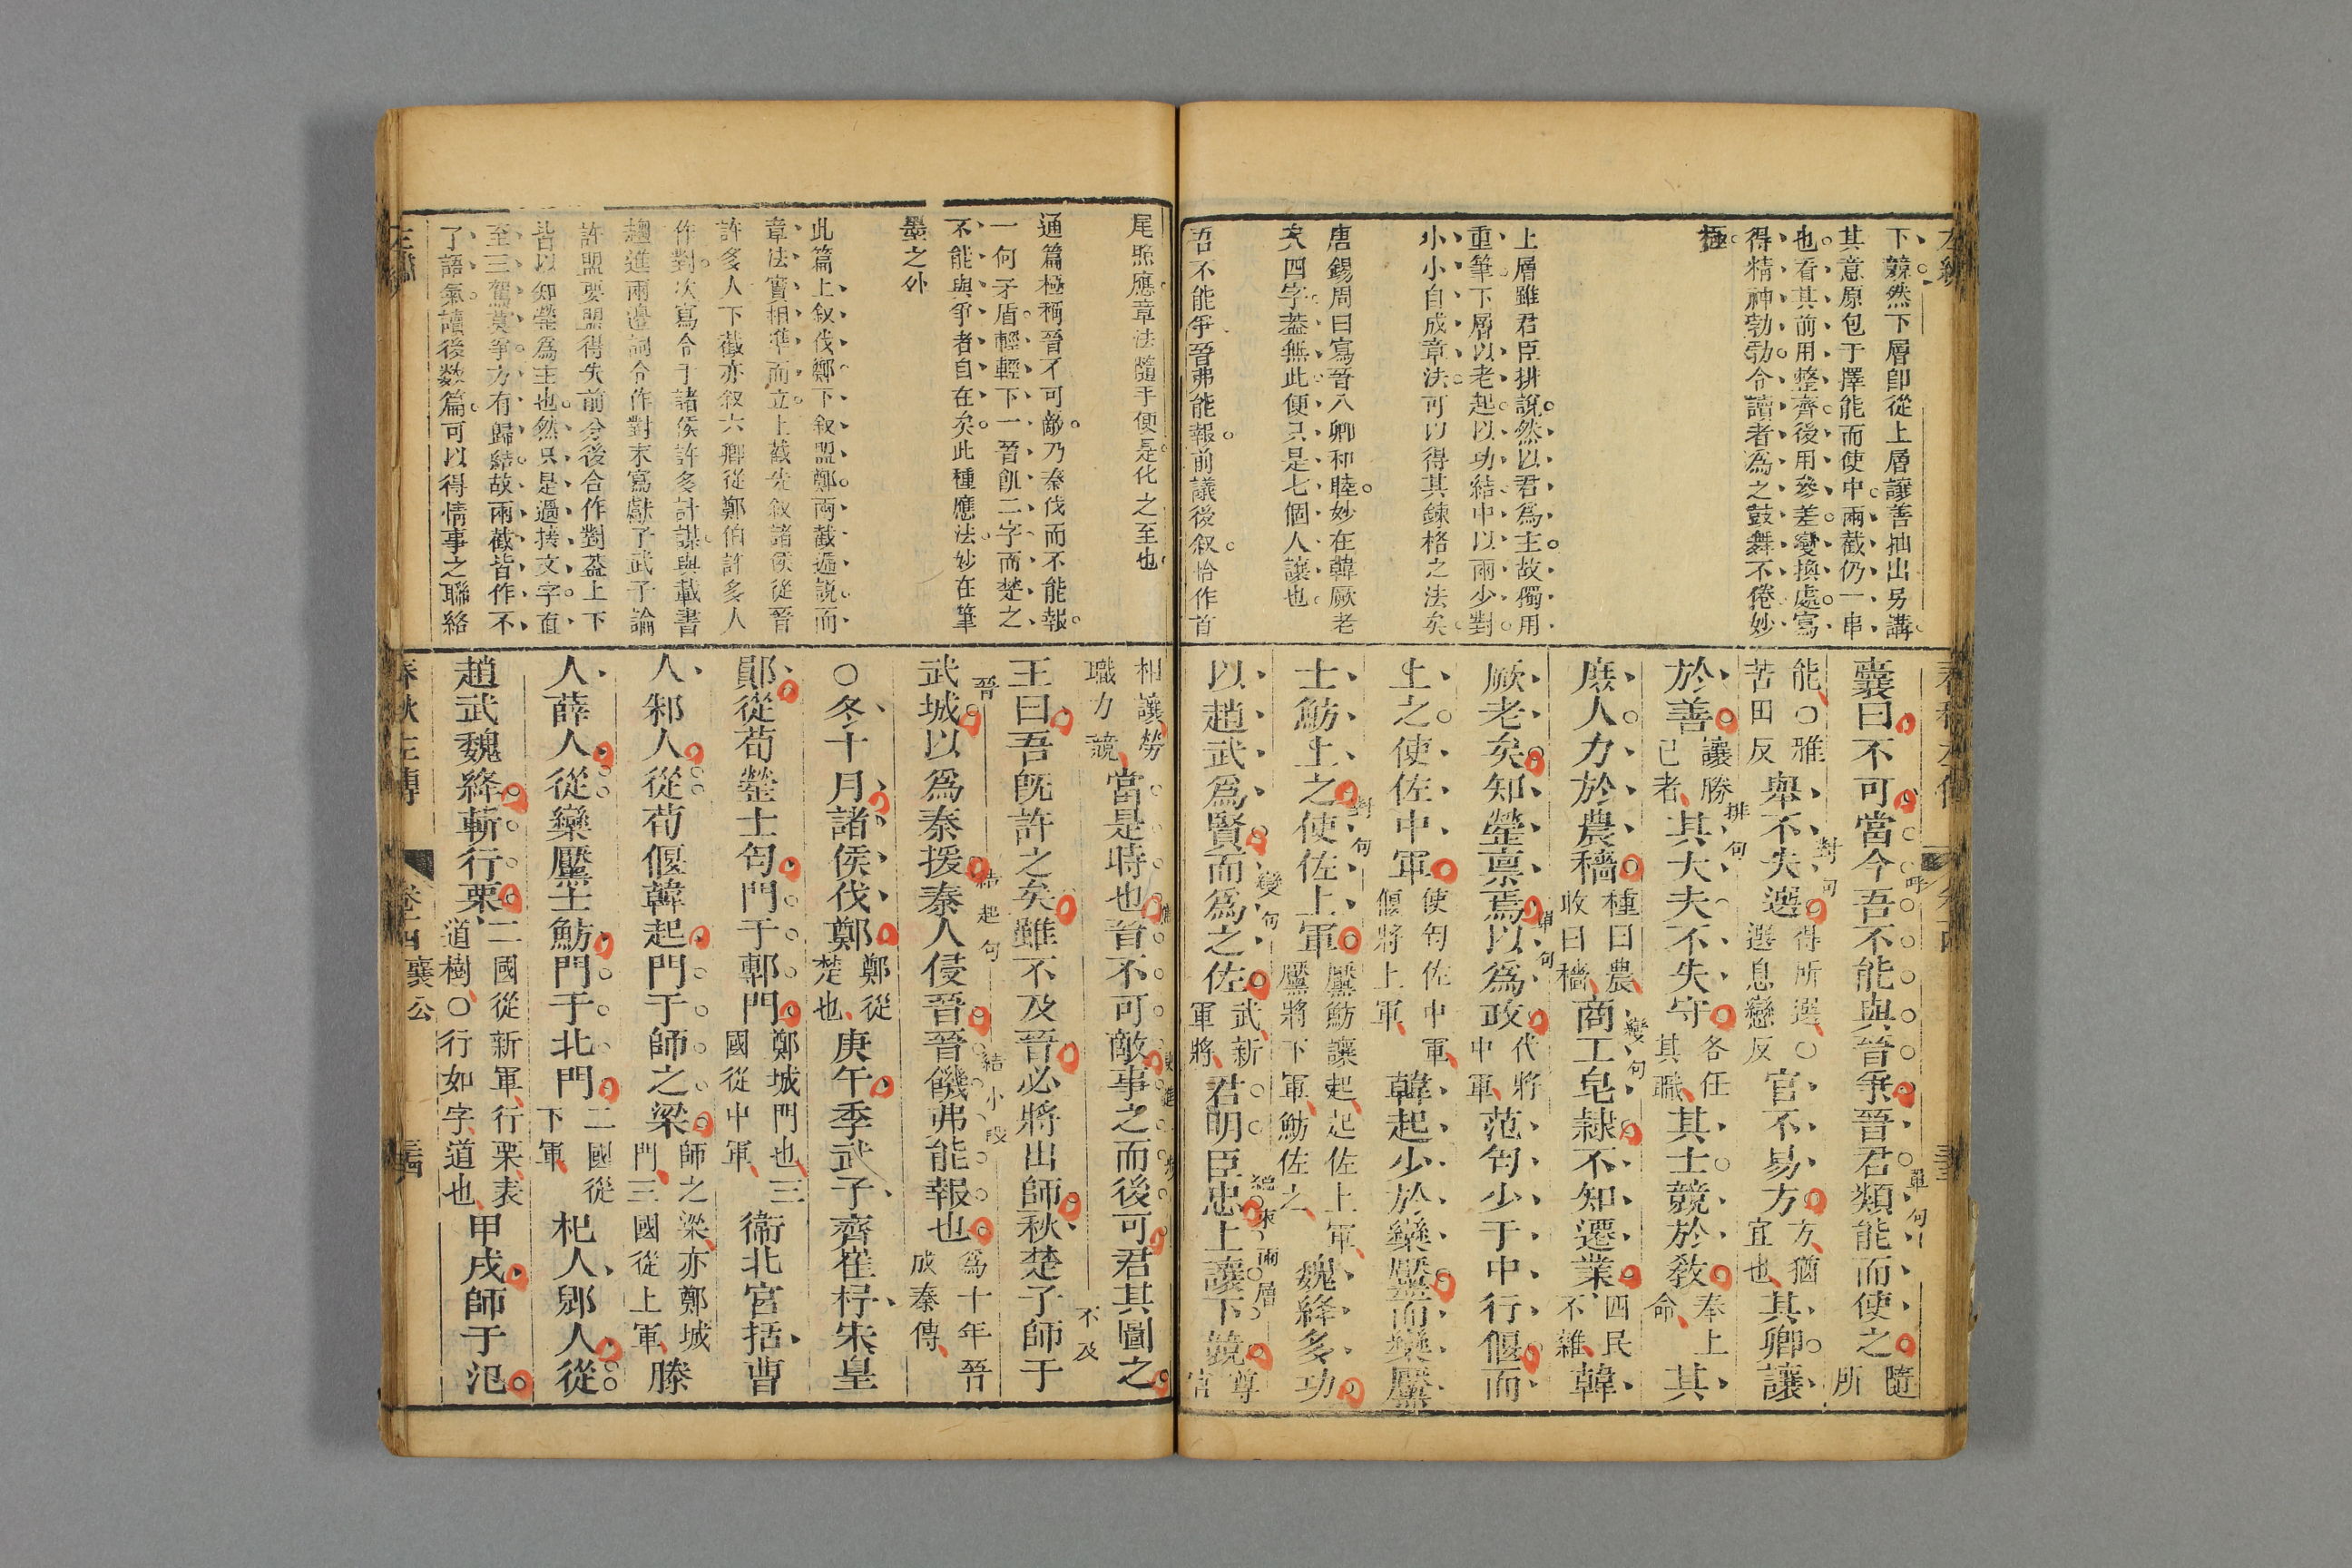 下競然下層卽從上層讓善抽出另講
其意原包于擇能而使中兩截仍一串
也看其前用整齊後用參差變換處寫
得精神勃勃令讀者為之鼓舞不倦妙
極
上層雖君臣排說然以君爲主故獨用
重筆下層以老起以功結中以兩少對
小小自成章法可以得其鍊格之法矣
唐錫周曰寫晉八卿和睦妙在韓厥老
矣四字葢無此便只是七個人讓也
吾不能爭晉弗能報前議後叙恰作首
囊曰不可當今吾不能與晉爭晉君類能而使之隨所
能○雅苦田反舉不失選得所選○選息戀反官不易方方猶宜也其卿讓
於善讓勝已者其大夫不失守各任其職其士競於敎奉上命其
庶人力於農穡種曰農收曰穡商工皂隷不知遷業四民不雜韓
厥老矣知罃禀焉以爲政代將中軍范匄少于中行偃而
上之使佐中軍使匄佐中軍偃將上軍韓起少於欒黶而欒黶
士魴上之使佐上軍黶魴讓起起佐上軍黶將下軍魴佐之魏絳多功
以趙武爲賢而爲之佐武新軍將君明臣忠上讓下競尊官
呼
單句
對句
排句
變句
單句
對句
變句
總束兩層
尾照應章法隨手便是化之至也
通篇極稱晉不可敵乃秦伐而不能報
一何矛盾輕輕下一晉飢二字而楚之
不能與爭者自在矣此種應法妙在筆
墨之外
此篇上叙伐鄭下叙盟鄭兩截遞說而
章法實相準而立上截先叙諸侯從晉
許多人下截亦叙六卿從鄭伯許多人
作對次寫令于諸侯許多計謀與載書
趨進兩邊詞令作對末寫獻子武子論
許盟要盟得失前分後合作對葢上下
皆以知罃爲主也然只是過接文字直
至三駕莫爭方有歸結故兩截皆作不
了語氣讀後数篇可以得情事之聯絡
相讓勞職力競當是時也晉不可敵事之而後可君其圖之
王曰吾旣許之矣雖不及晉必將出師秋楚子師于
武城以爲秦援秦人侵晉晉饑弗能報也爲十年晉成秦傳
○冬十月諸侯伐鄭鄭從楚也庚午季武子齊崔杼宋皇
鄖從荀罃士匄門于鄟門鄭城門也三國從中軍衞北宮括曹
人邾人從荀偃韓起門于師之梁師之梁亦鄭城門三國從上軍滕
人薛人從欒黶士魴門于北門二國從下軍杞人郳人從
趙武魏絳斬行栗二國從新軍行栗表道樹○行如字道也甲戌師于氾
不及晉
結起句
結小段
春秋左傳
卷十四
襄公